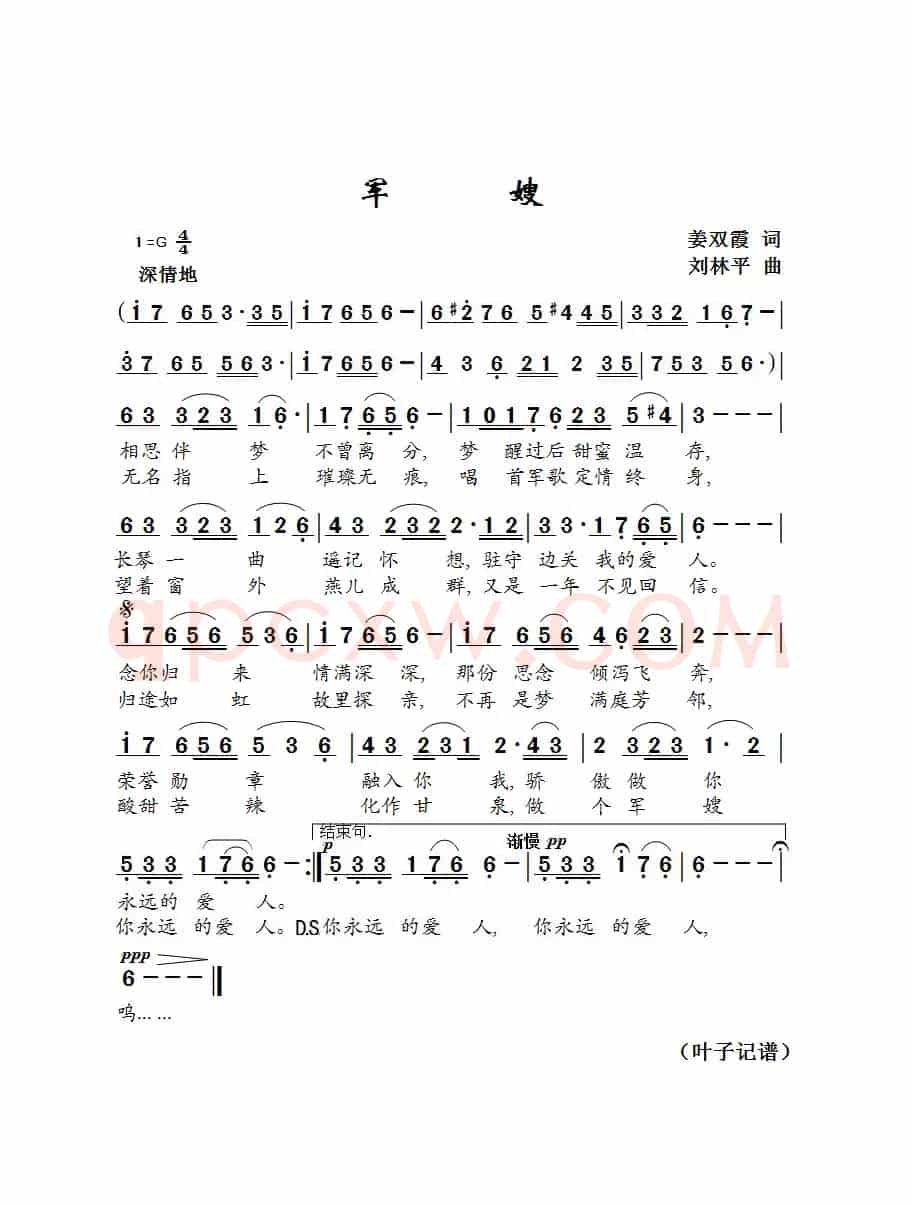 军 嫂
1=G 4/4
姜双霞 词
深情地
刘林平 曲
(i 7 6 5 3· 3 5 | i 7 6 5 6 - | 6 #2 7 6 5 #4 4 5 | 3 3 2 1 6 7 - |
3 7 6 5 5 6 3· | i 7 6 5 6 - | 4 3 6 2 1 2 3 5 | 7 5 3 5 6· ) |
6 3 3 2 3 1 6· | 1 7 6 5 6 - | 1 0 1 7 6 2 3 5 #4 | 3 - - - |
相思伴 梦 不曾离 分, 梦 醒过后甜蜜温 存,
无名指 上 璀璨无 痕, 唱 首军歌定情终 身,
6 3 3 2 3 1 2 6 | 4 3 2 3 2 2· 1 2 | 3 3· 1 7 6 5 | 6 - - - |
长琴一 曲 遥记 怀 想, 驻守 边关 我的爱 人。
望着窗 外 燕儿 成 群, 又是 一年 不见回 信。
i 7 6 5 6 5 3 6 | i 7 6 5 6 - | i 7 5 6 5 6 4 6 2 3 | 2 - - - |
qpcxw.COM
念你归 来 情满深 深, 那份 思念 倾泻飞 奔,
归途如 虹 故里探 亲, 不再 是梦 满庭芳 邻,
i 7 6 5 6 5 3 6 | 4 3 2 3 1 2· 4 3 | 2 3 2 3 1· 2 |
荣誉勋 章 融入你 我, 骄 傲 做 你
酸甜苦 辣 化作甘 泉, 做 个 军 嫂
结束句.
p 渐慢 pp
5 3 3 1 7 6 6 - :| 5 3 3 1 7 6 6 - | 5 3 3 1 7 6 | 6 - - - |
永远的 爱 人。
你永远 的爱 人。D.S 你永远 的爱 人, 你永远 的爱 人,
ppp
6 - - - ||
呜... ...
(叶子记谱)